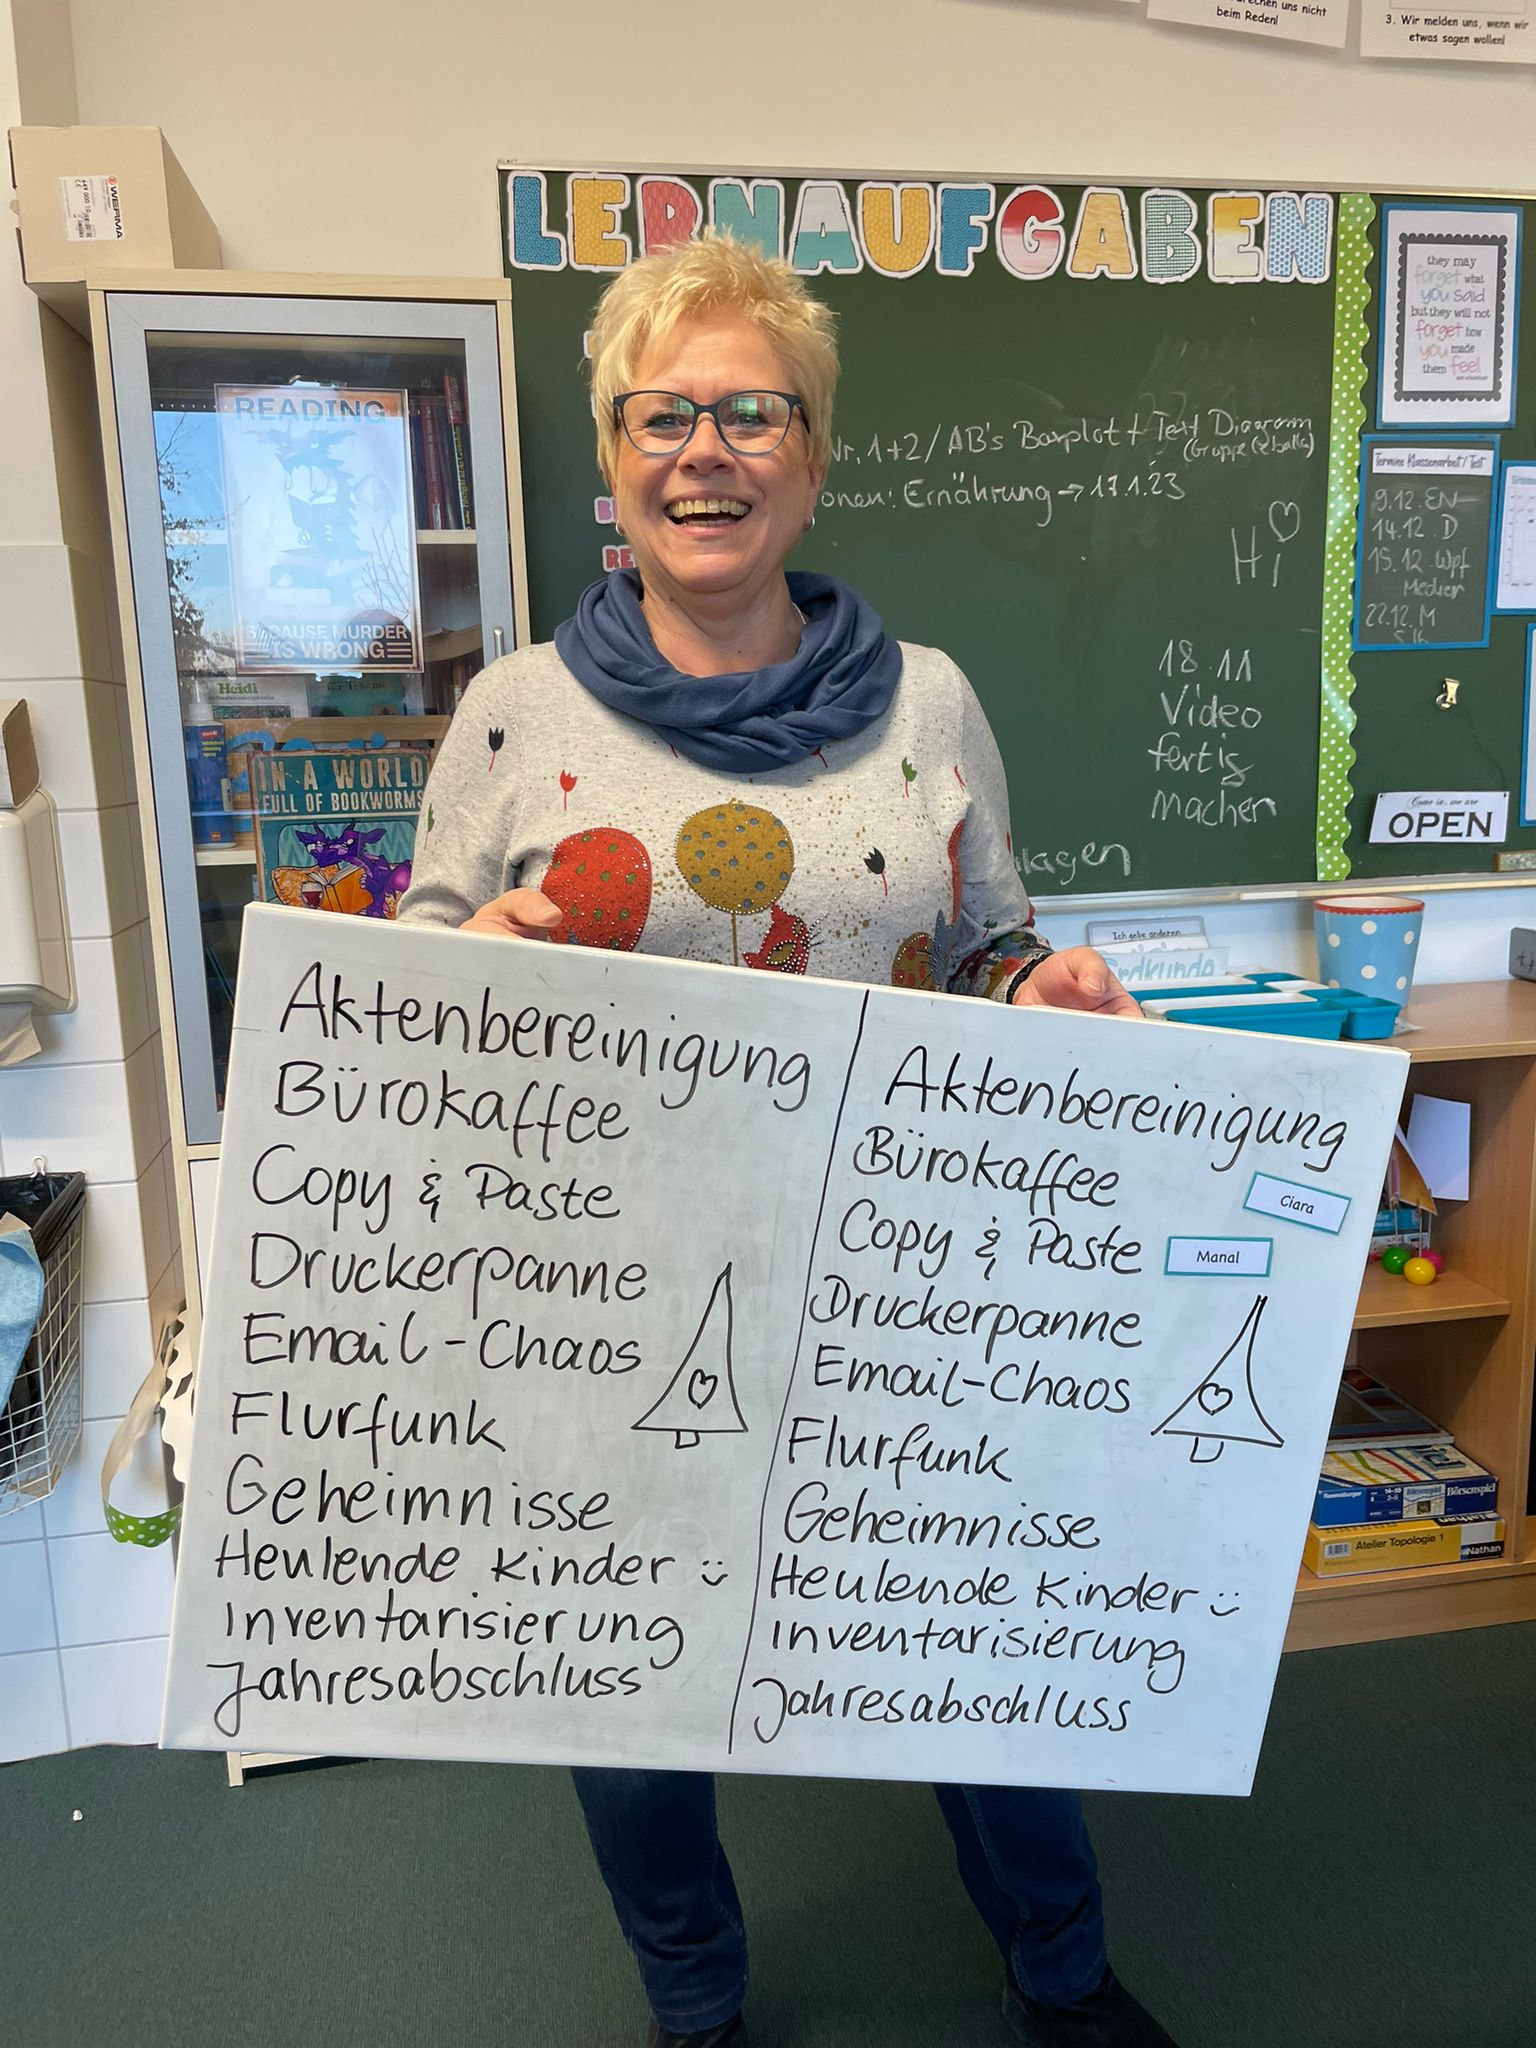 beim Reden!
3. Wir melden uns, wenn wir
etwas sagen wollen!
WERMA
LERNAUFGABEN
they may
forget what
you said
but they will not
forget how
you made
them feel
READING
BECAUSE MURDER
IS WRONG
Heidi
IN A WORLD
FULL OF BOOKWORMS
Nr. 1+2 / AB's Boxplot + Text Diagramm
onen: Ernährung → 17.1.23
Hi
18.11
Video
fertig
machen
lagen
Termine Klassenarbeit / Test
9.12. EN
14.12. D
15.12. Wpf
Medien
22.12. M
Come in, we are
OPEN
Ich gebe anderen
Erdkunde
Aktenbereinigung
Bürokaffee
Copy & Paste
Druckerpanne
Email-Chaos
Flurfunk
Geheimnisse
Heulende Kinder
Inventarisierung
Jahresabschluss
Aktenbereinigung
Bürokaffee
Copy & Paste
Druckerpanne
Email-Chaos
Flurfunk
Geheimnisse
Heulende Kinder
Inventarisierung
Jahresabschluss
Ciara
Manal
Ravensburger
Börsenspiel
Atelier Topologie 1
Nathan